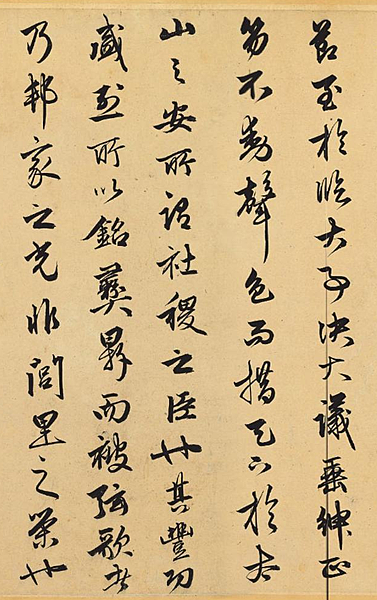 節至於臨大事決大議垂紳正
笏不動聲色而措天下於太
山之安可謂社稷之臣也其豐功
盛烈所以銘彝鼎而被弦歌者
乃邦家之光非閭里之榮也